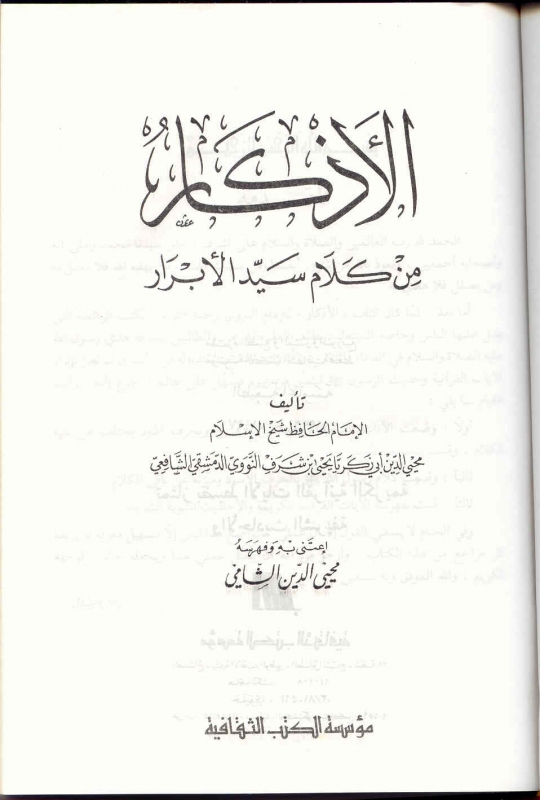 الأذكار
من كلام سيد الأبرار
تأليف
الإمام الحافظ شيخ الإسلام
محيي الدين أبي زكريا يحيى بن شرف النووي الدمشقي الشافعي
اعتنى به وفهرسه
محيي الدين الشامي
مؤسسة الكتب الثقافية